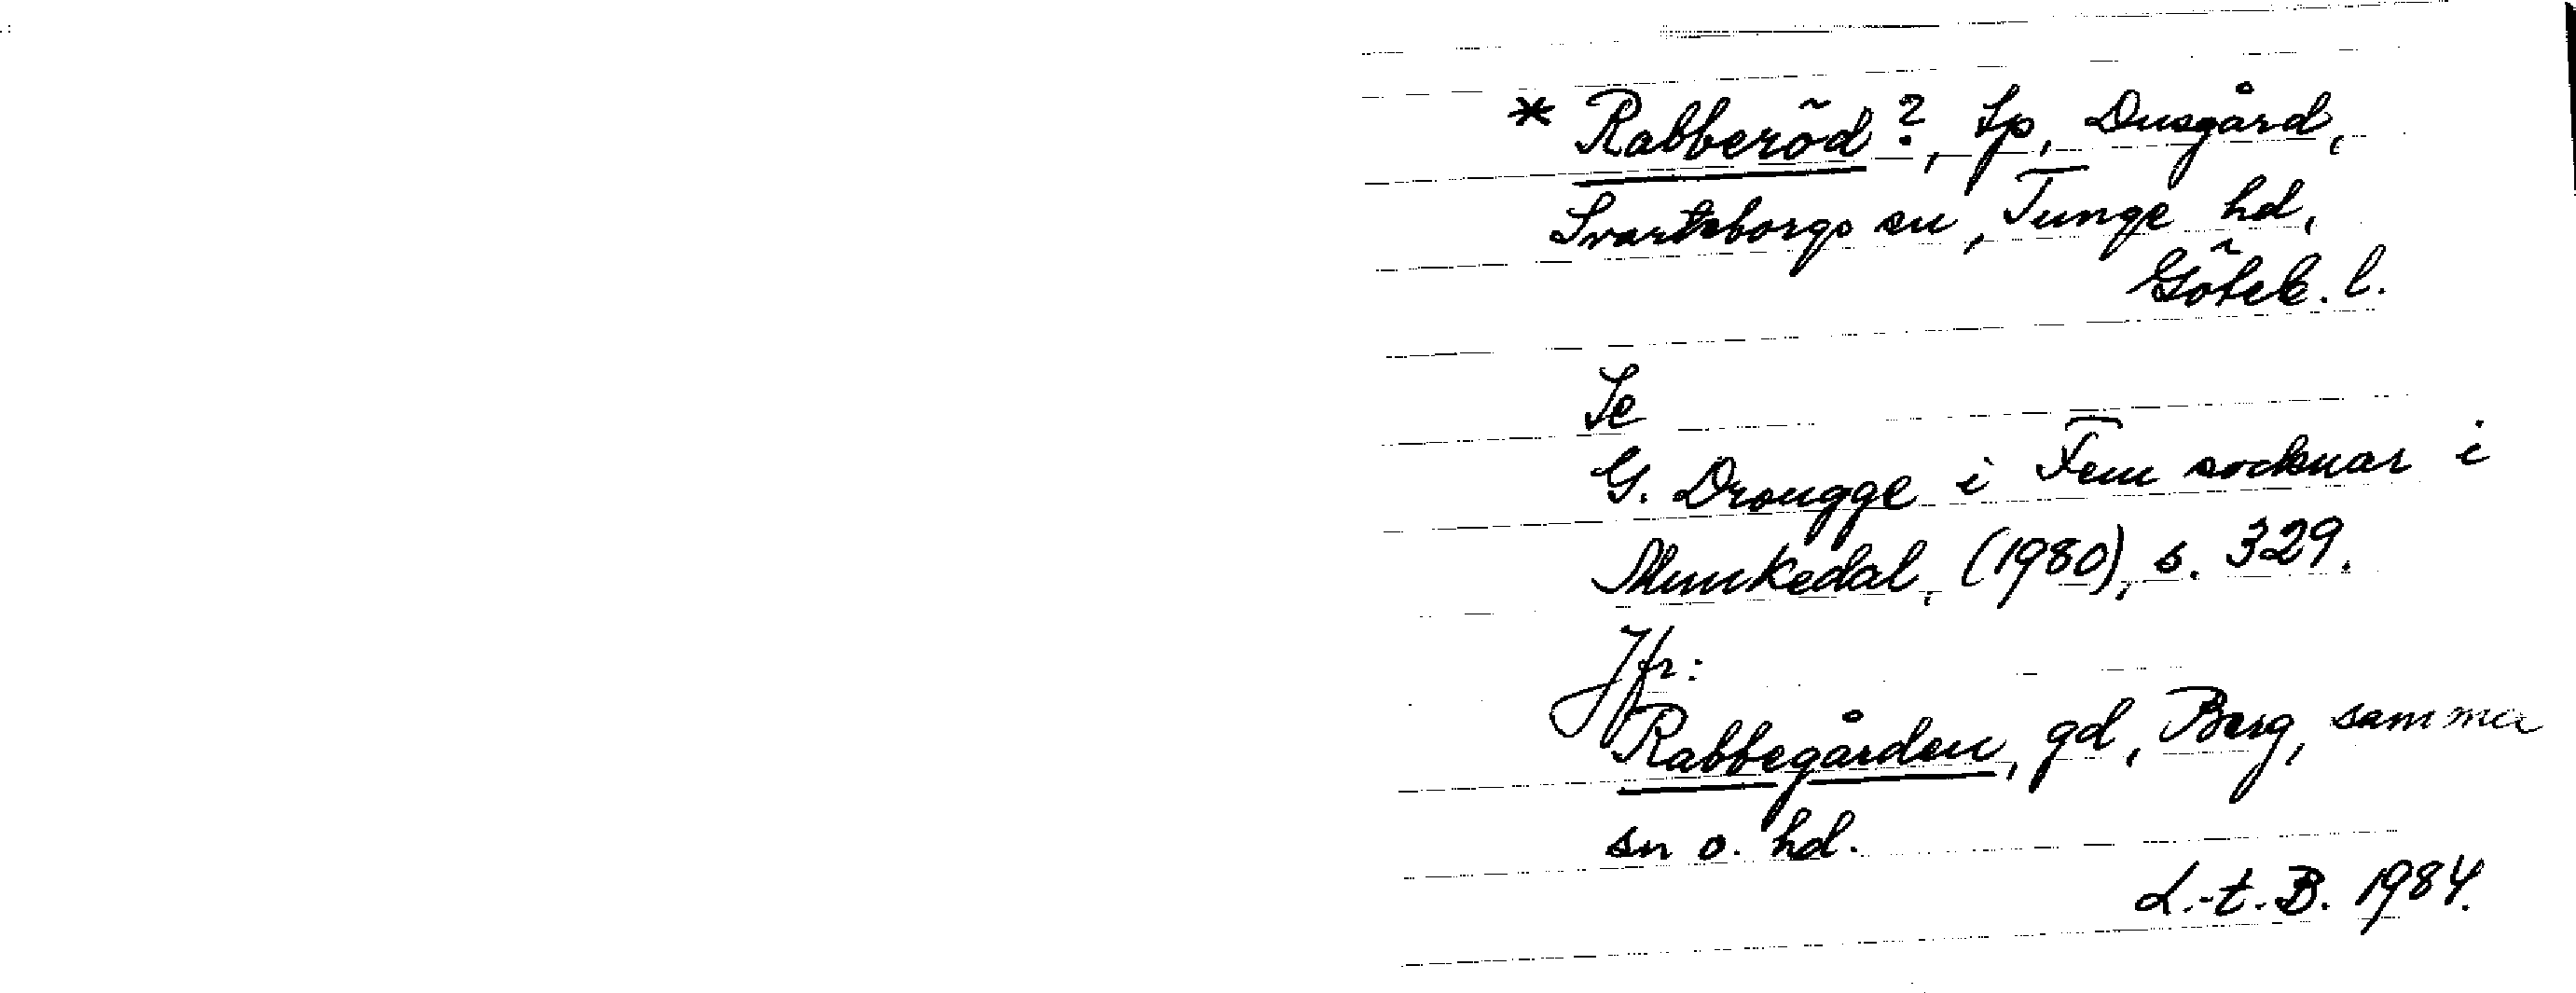 * Rabberöd?, tp, Dusgård,
Svarteborgs sn, Tunge hd,
Göteb. l.
Se
G. Drougge i Fem socknar i
Munkedal, (1980), s. 329.
Jfr:
Rabbegården, gd, Berg, samma
sn o. hd.
L.-t. B. 1984.